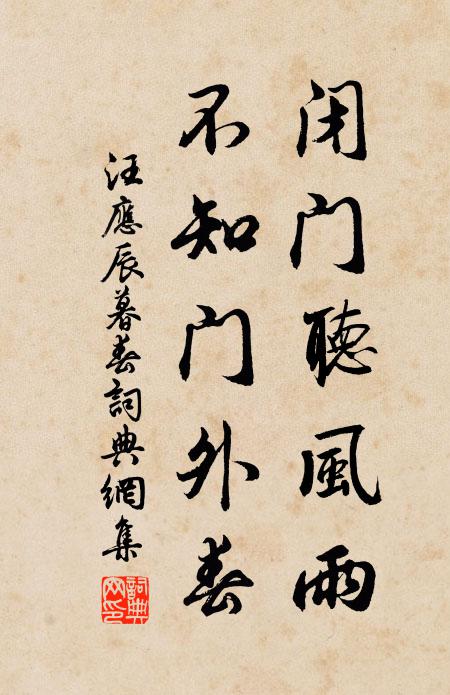 闭门聽風雨
不知门外春
汪應辰暮春詞典網集
詞典